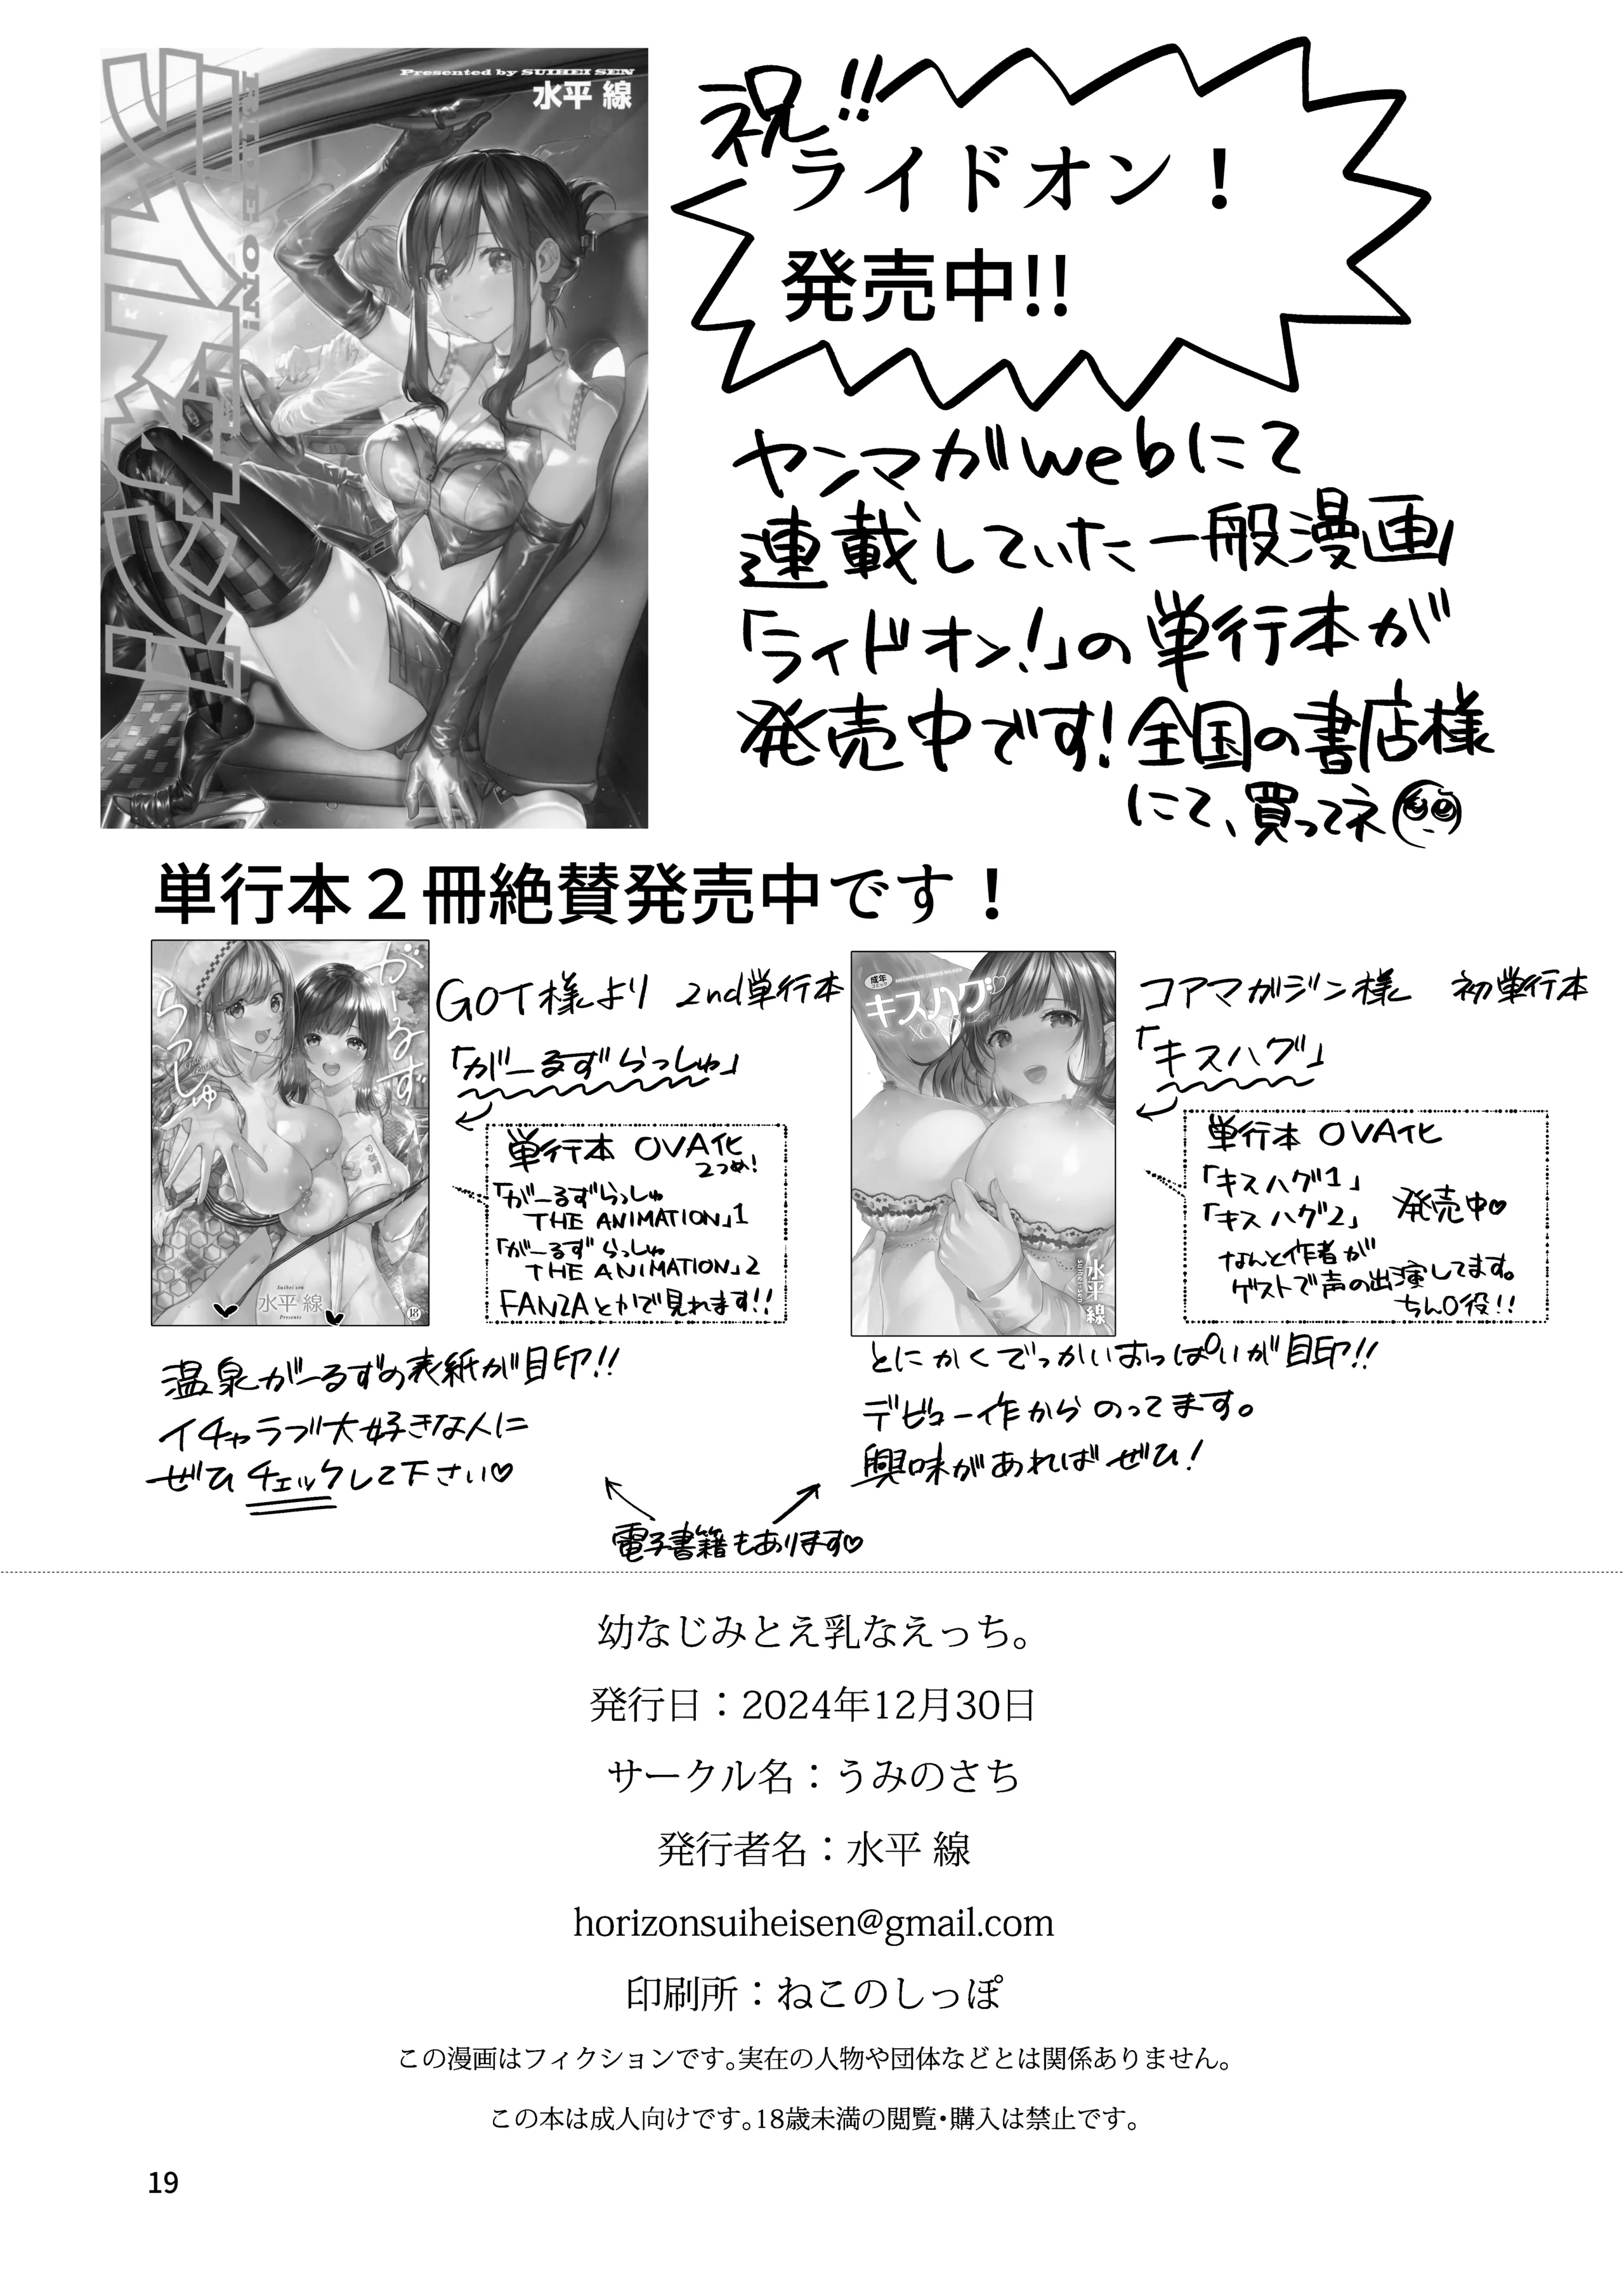 Presented by SUIHEI SEN
水平 線
RIDE ON!
ライドオン!
祝!!
ライドオン！
発売中!!
ヤンマガwebにて
連載していた一般漫画
「ライドオン!」の単行本が
発売中です!全国の書店様
にて、買ってネ
単行本２冊絶賛発売中です！
がーるず
らっしゅ
Suihei sen
水平 線
Presents
18
GOT様より 2nd単行本
「がーるずらっしゅ」
単行本 OVA化
2つめ!
「がーるずらっしゅ
THE ANIMATION」1
「がーるずらっしゅ
THE ANIMATION」2
FANZAとかで見れます!!
温泉がーるずの表紙が目印!!
イチャラブ大好きな人に
ぜひチェックして下さい♡
成年
キスハグ
水平線
コアマガジン様 初単行本
「キスハグ」
単行本 OVA化
「キスハグ1」
「キスハグ2」 発売中♡
なんと作者が
ゲストで声の出演してます。
ちん〇役!!
とにかくでっかいおっぱいが目印!!
デビュー作からのってます。
興味があればぜひ!
電子書籍もあります♡
幼なじみとえ乳なえっち。
発行日：2024年12月30日
サークル名：うみのさち
発行者名：水平 線
horizonsuiheisen@gmail.com
印刷所：ねこのしっぽ
この漫画はフィクションです。実在の人物や団体などとは関係ありません。
この本は成人向けです。18歳未満の閲覧・購入は禁止です。
19